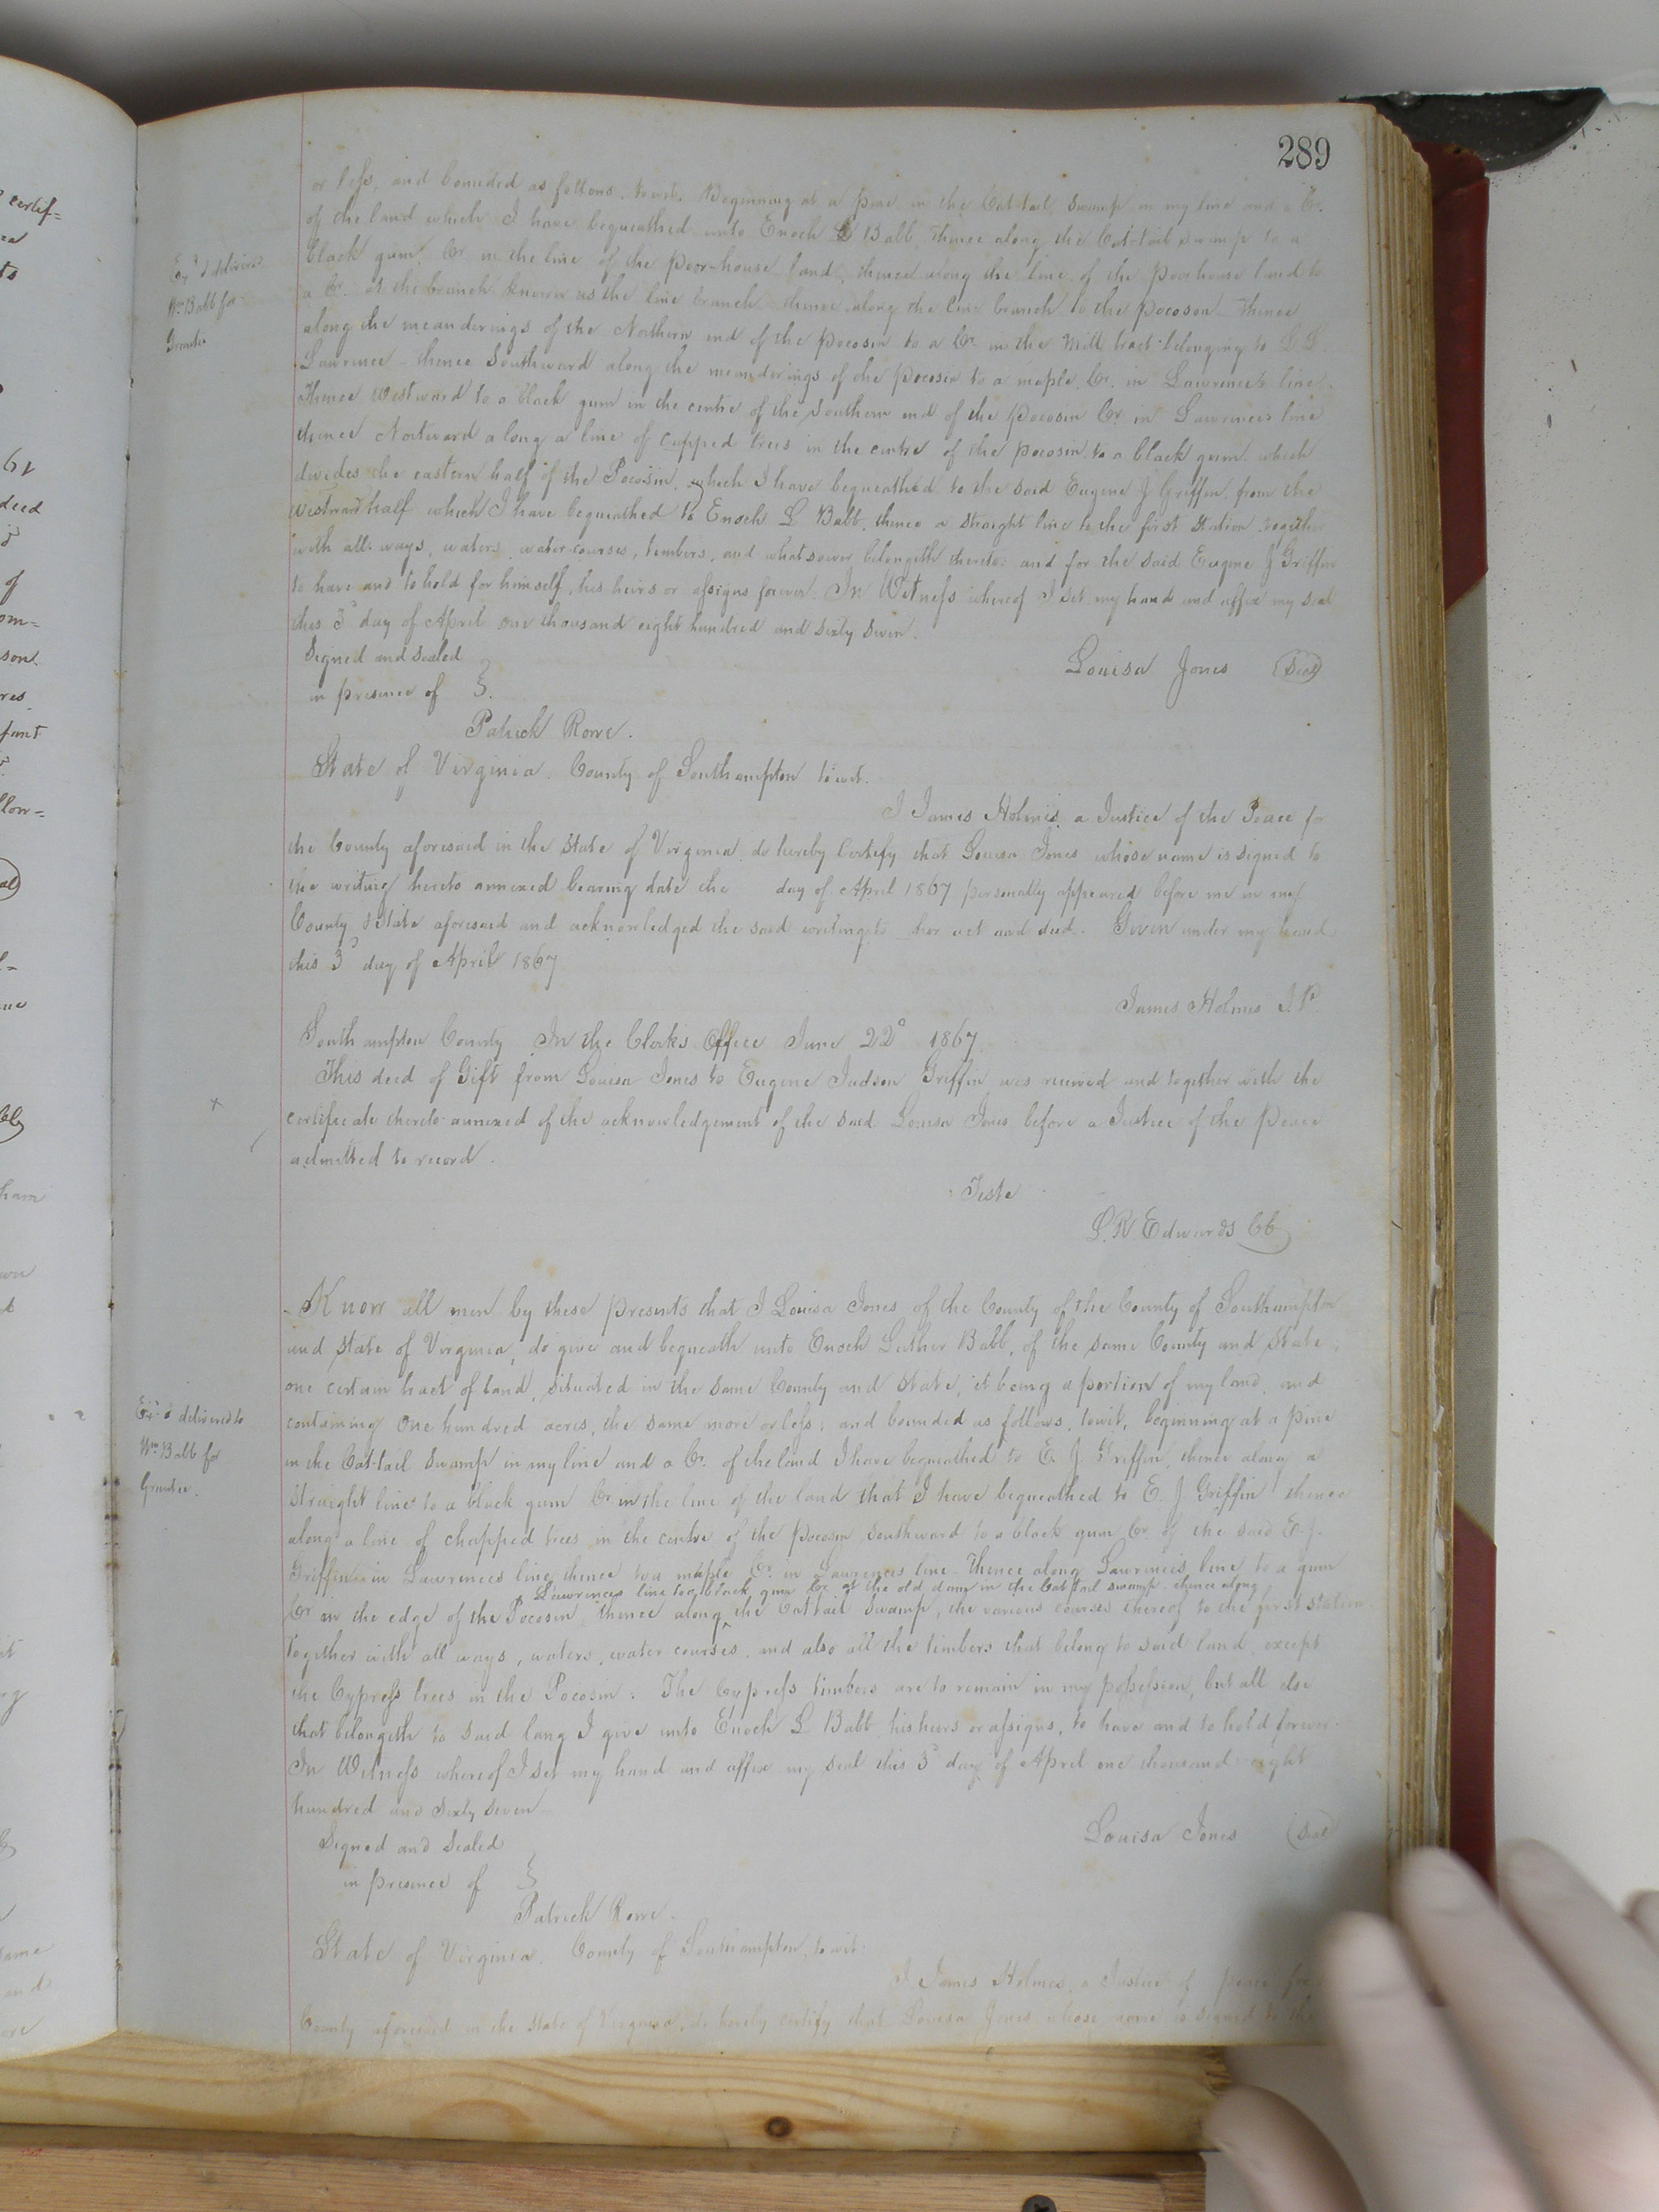 289
or less, and bounded as follows, towit, Beginning at a pine in the Cat-tail Swamp in my line and a Cr.
of the land which I have bequeathed unto Enoch L Babb, thence along the Cat-tail swamp to a
black gum, Cr. in the line of the poor-house land, thence along the line of the poorhouse land to
a Cr. at the branch known as the line branch thence along the line branch to the pocoson. Thence
along the meanderings of the Northern end of the pocosin to a Cr. in the Mill tract belonging to
Lawrence - thence Southward along the meanderings of the pocosin to a maple, Cr. in Lawrence's line,
Thence Westward to a black gum in the centre of the Southern end of the pocosin Cr. in Lawrences line
thence Northward along a line of chopped trees in the centre of the pocosin to a black gum which
divides the eastern half of the Pocosin, which I have bequeathed to the said Eugene J Griffin, from the
westward half which I have bequeathed to Enoch L Babb, thence a straight line to the first Station together
with all ways, waters, water courses, timbers, and whatsoever belongeth thereto: and for the said Eugene J Griffin
to have and to hold for himself, his heirs or assigns forever. In Witness whereof I set my hand and affix my seal
this 3d day of April one thousand eight hundred and sixty seven.
Signed and sealed
in presence of }.
Louisa Jones (Seal)
Patrick Rowe.
State of Virginia. County of Southampton towit.
I James Holmes, a Justice of the Peace for
the County aforesaid in the State of Virginia do hereby Certify that Louisa Jones whose name is signed to
the writing hereto annexed bearing date the day of April 1867 personally appeared before me in my
County & State aforesaid and acknowledged the said writing to her act and deed. Given under my hand
this 3d day of April 1867
James Holmes J.P.
Southampton County In the Clerks Office June 22d 1867
This deed of Gift from Louisa Jones to Eugene Judson Griffin was received and together with the
certificate thereto annexed of the acknowledgement of the said Louisa Jones before a Justice of the Peace
admitted to record.
Teste
L. R. Edwards CC
Know all men by these presents that I Louisa Jones of the County of the County of Southampton
and State of Virginia, do give and bequeath unto Enoch Luther Babb, of the same County and State,
one certain tract of land, situated in the same County and State, it being a portion of my land, and
containing One hundred acres, the same more or less; and bounded as follows, towit, beginning at a pine
in the Cat-tail Swamp in my line and a Cr. of the land I have bequeathed to E. J. Griffin, thence along a
straight line to a black gum Cr in the line of the land that I have bequeathed to E. J Griffin thence
along a line of chopped trees in the centre of the Pocosin Southward to a black gum Cr. of the said E. J.
Griffin in Lawrences line, thence to a maple Cr. in Lawrences line - Thence along Lawrences line to a gum
Lawrences line to a black gum Cr at the old dam in the Cat tail swamp. thence along
Cr in the edge of the Pocosin, thence along the Cattail Swamp, the various courses thereof to the first station
Together with all ways, waters, water courses, and also all the timbers that belong to said land, except
the Cypress trees in the Pocosin. The Cypress timbers are to remain in my possession, but all else
that belongeth to said lang I give unto Enoch L Babb his heirs or assigns, to have and to hold forever.
In Witness whereof I set my hand and affix my seal this 3d day of April one thousand eight
hundred and sixty seven
Signed and Sealed
in presence of }
Louisa Jones (Seal)
Patrick Rowe.
State of Virginia. County of Southampton, towit:
I James Holmes, a Justice of peace for
County aforesaid in the State of Virginia, do hereby certify that Louisa Jones whose name is signed to the
Exd & delivered
Wm Babb for
Grantee
Exd & delivered to
Wm Babb for
Grantee.